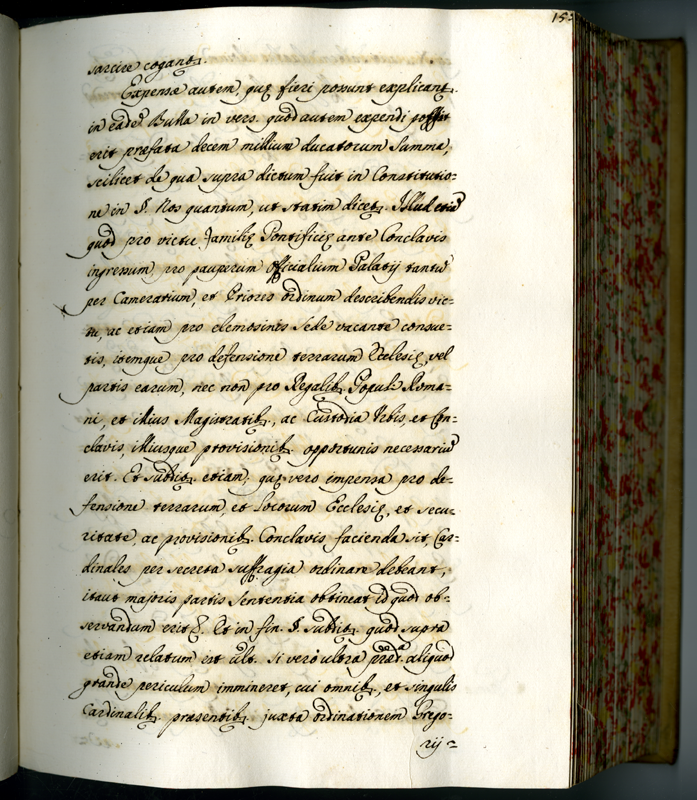 15
sarcire cogant.
Expense autem, quę fieri possunt explicant.
in eadē Bulla in vers. quod autem expendi possit
erit præfata decem millium ducatorum Summa,
scilicet de qua supra dictum fuit in Constitutio=
ne in §. Nos quantum, ut statim dicet. Illud etiā
quod pro victu Familię Pontificię ante Conclavis
ingressum, pro pauperum Officialium Palatij tantū
per Camerarium, et Priores ordinum describendis vic=
tu, ac etiam pro elemosinis Sede vacante consue=
tis, itemque pro defensione terrarum Ecclesię, vel
partis earum, nec non pro Regalib. Populi Roma=
ni, et illius Magistratib., ac Custodia Urbis, et Con=
clavis, illiusque provisionib. opportunis necessariū
erit. Et subdit. etiam; quę vero impensa pro de=
fensione terrarum et Locorum Ecclesię, et secu=
ritate, ac provisionib. Conclavis facienda sit, Car=
dinales per secreta suffragia ordinare debeant,
itaut majoris partis Sententia obtineat id quod ob=
servandum erit &. Et in fin. §. subdit. quod supra
etiam relatum est ult. Si vero ultra præd.ᵃ aliquod
grande periculum immineret, cui omnib., et singulis
Cardinalib. præsentib. juxta ordinationem Grego=
rij =